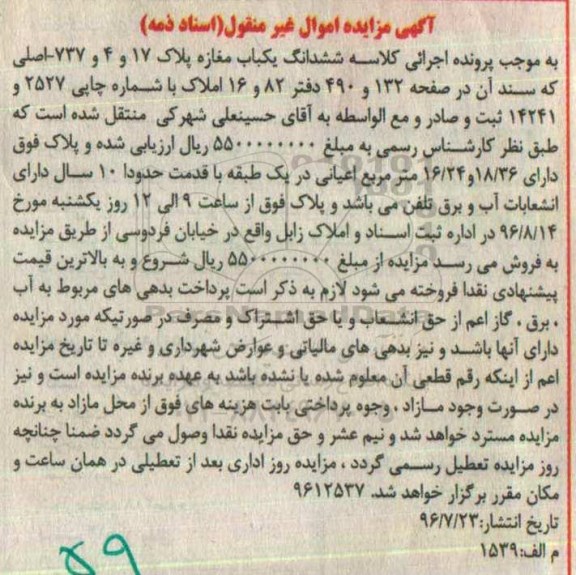 آگهی مزایده اموال غیر منقول(اسناد ذمه)
به موجب پرونده اجرائی کلاسه ششدانگ یکباب مغازه پلاک ۱۷ و ۴ و ۷۳۷-اصلی
که سند آن در صفحه ۱۳۲ و ۴۹۰ دفتر ۸۲ و ۱۶ املاک با شماره چاپی ۲۵۲۷ و
۱۴۲۴۱ ثبت و صادر و مع الواسطه به آقای حسینعلی شهرکی منتقل شده است که
طبق نظر کارشناس رسمی به مبلغ ۵۵۰۰۰۰۰۰۰۰ ریال ارزیابی شده و پلاک فوق
دارای ۱۸/۳۶و۱۶/۲۴ متر مربع اعیانی در یک طبقه با قدمت حدودا ۱۰ سال دارای
انشعابات آب و برق تلفن می باشد و پلاک فوق از ساعت ۹ الی ۱۲ روز یکشنبه مورخ
۹۶/۸/۱۴ در اداره ثبت اسناد و املاک زابل واقع در خیابان فردوسی از طریق مزایده
به فروش می رسد مزایده از مبلغ ۵۵۰۰۰۰۰۰۰۰ ریال شروع و به بالاترین قیمت
پیشنهادی نقدا فروخته می شود لازم به ذکر است پرداخت بدهی های مربوط به آب
، برق ، گاز اعم از حق انشعاب و یا حق اشتراک و مصرف در صورتیکه مورد مزایده
دارای آنها باشد و نیز بدهی های مالیاتی و عوارض شهرداری و غیره تا تاریخ مزایده
اعم از اینکه رقم قطعی آن معلوم شده یا نشده باشد به عهده برنده مزایده است و نیز
در صورت وجود مازاد ، وجوه پرداختی بابت هزینه های فوق از محل مازاد به برنده
مزایده مسترد خواهد شد و نیم عشر و حق مزایده نقدا وصول می گردد ضمنا چنانچه
روز مزایده تعطیل رسمی گردد ، مزایده روز اداری بعد از تعطیلی در همان ساعت و
مکان مقرر برگزار خواهد شد. ۹۶۱۲۵۳۷
تاریخ انتشار:۹۶/۷/۲۳
م الف:۱۵۳۹